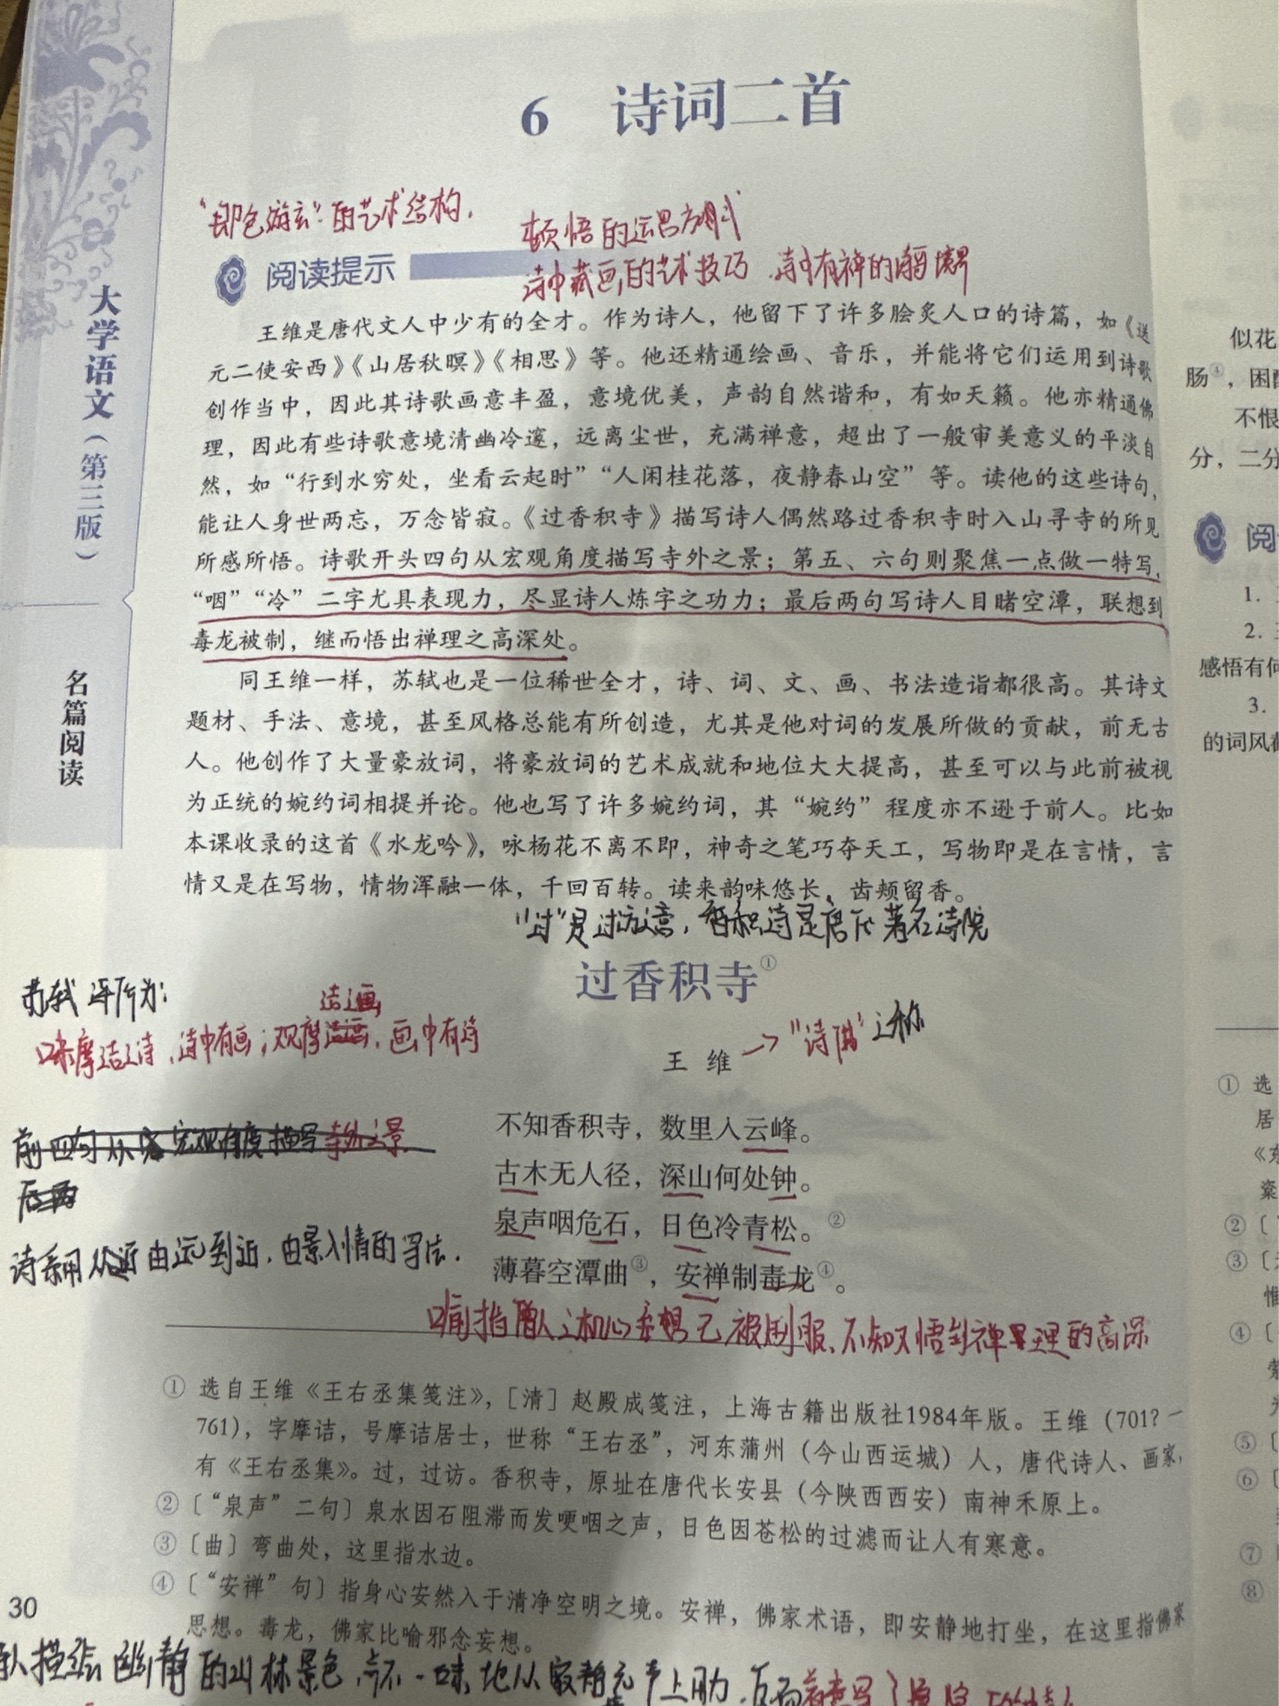 6 诗词二首
“即色游玄”的艺术结构.
顿悟的运思方式
诗中藏画的艺术技巧 . 诗中有禅的 境界
阅读提示
王维是唐代文人中少有的全才。作为诗人，他留下了许多脍炙人口的诗篇，如《送
元二使安西》《山居秋暝》《相思》等。他还精通绘画、音乐，并能将它们运用到诗歌
创作当中，因此其诗歌画意丰盈，意境优美，声韵自然谐和，有如天籁。他亦精通佛
理，因此有些诗歌意境清幽冷邃，远离尘世，充满禅意，超出了一般审美意义的平淡自
然，如“行到水穷处，坐看云起时”“人闲桂花落，夜静春山空”等。读他的这些诗句，
能让人身世两忘，万念皆寂。《过香积寺》描写诗人偶然路过香积寺时入山寻寺的所见
所感所悟。诗歌开头四句从宏观角度描写寺外之景；第五、六句则聚焦一点做一特写，
“咽”“冷”二字尤具表现力，尽显诗人炼字之功力；最后两句写诗人目睹空潭，联想到
毒龙被制，继而悟出禅理之高深处。
同王维一样，苏轼也是一位稀世全才，诗、词、文、画、书法造诣都很高。其诗文
题材、手法、意境，甚至风格总能有所创造，尤其是他对词的发展所做的贡献，前无古
人。他创作了大量豪放词，将豪放词的艺术成就和地位大大提高，甚至可以与此前被视
为正统的婉约词相提并论。他也写了许多婉约词，其“婉约”程度亦不逊于前人。比如
本课收录的这首《水龙吟》，咏杨花不离不即，神奇之笔巧夺天工，写物即是在言情，言
情又是在写物，情物浑融一体，千回百转。读来韵味悠长，齿颊留香。
“过”是过访意，香积诗是唐代著名诗院
过香积寺①
苏轼评所为：
诘之画
味摩诘之诗，诗中有画；观摩 ，画中有诗
王 维 → “诗佛”之称
不知香积寺，数里入云峰。
前四句从 宏观角度描写寺外之景
古木无人径，深山何处钟。
后两
泉声咽危石，日色冷青松。②
诗采用 由远到近，由景入情的写法.
薄暮空潭曲③，安禅制毒龙④。
喻指僧人之机心妄想已被制服，不知又悟到禅 理的高深
① 选自王维《王右丞集笺注》，［清］赵殿成笺注，上海古籍出版社1984年版。王维（701？—
761），字摩诘，号摩诘居士，世称“王右丞”，河东蒲州（今山西运城）人，唐代诗人、画家，
有《王右丞集》。过，过访。香积寺，原址在唐代长安县（今陕西西安）南神禾原上。
② 〔“泉声”二句〕泉水因石阻滞而发哽咽之声，日色因苍松的过滤而让人有寒意。
③ 〔曲〕弯曲处，这里指水边。
④ 〔“安禅”句〕指身心安然入于清净空明之境。安禅，佛家术语，即安静地打坐，在这里指佛家
思想。毒龙，佛家比喻邪念妄想。
30
描绘幽静的山林景色，并不一味地从寂静无声上助，反而着意写了
大学语文（第三版）
名篇阅读
似花
肠④，困酣
不恨
分，二分
阅
1.
2.
感悟有何
3.
的词风
① 选
居
《东
②〔
③〔
惟
④〔
⑤〔
⑥〔
⑦
⑧